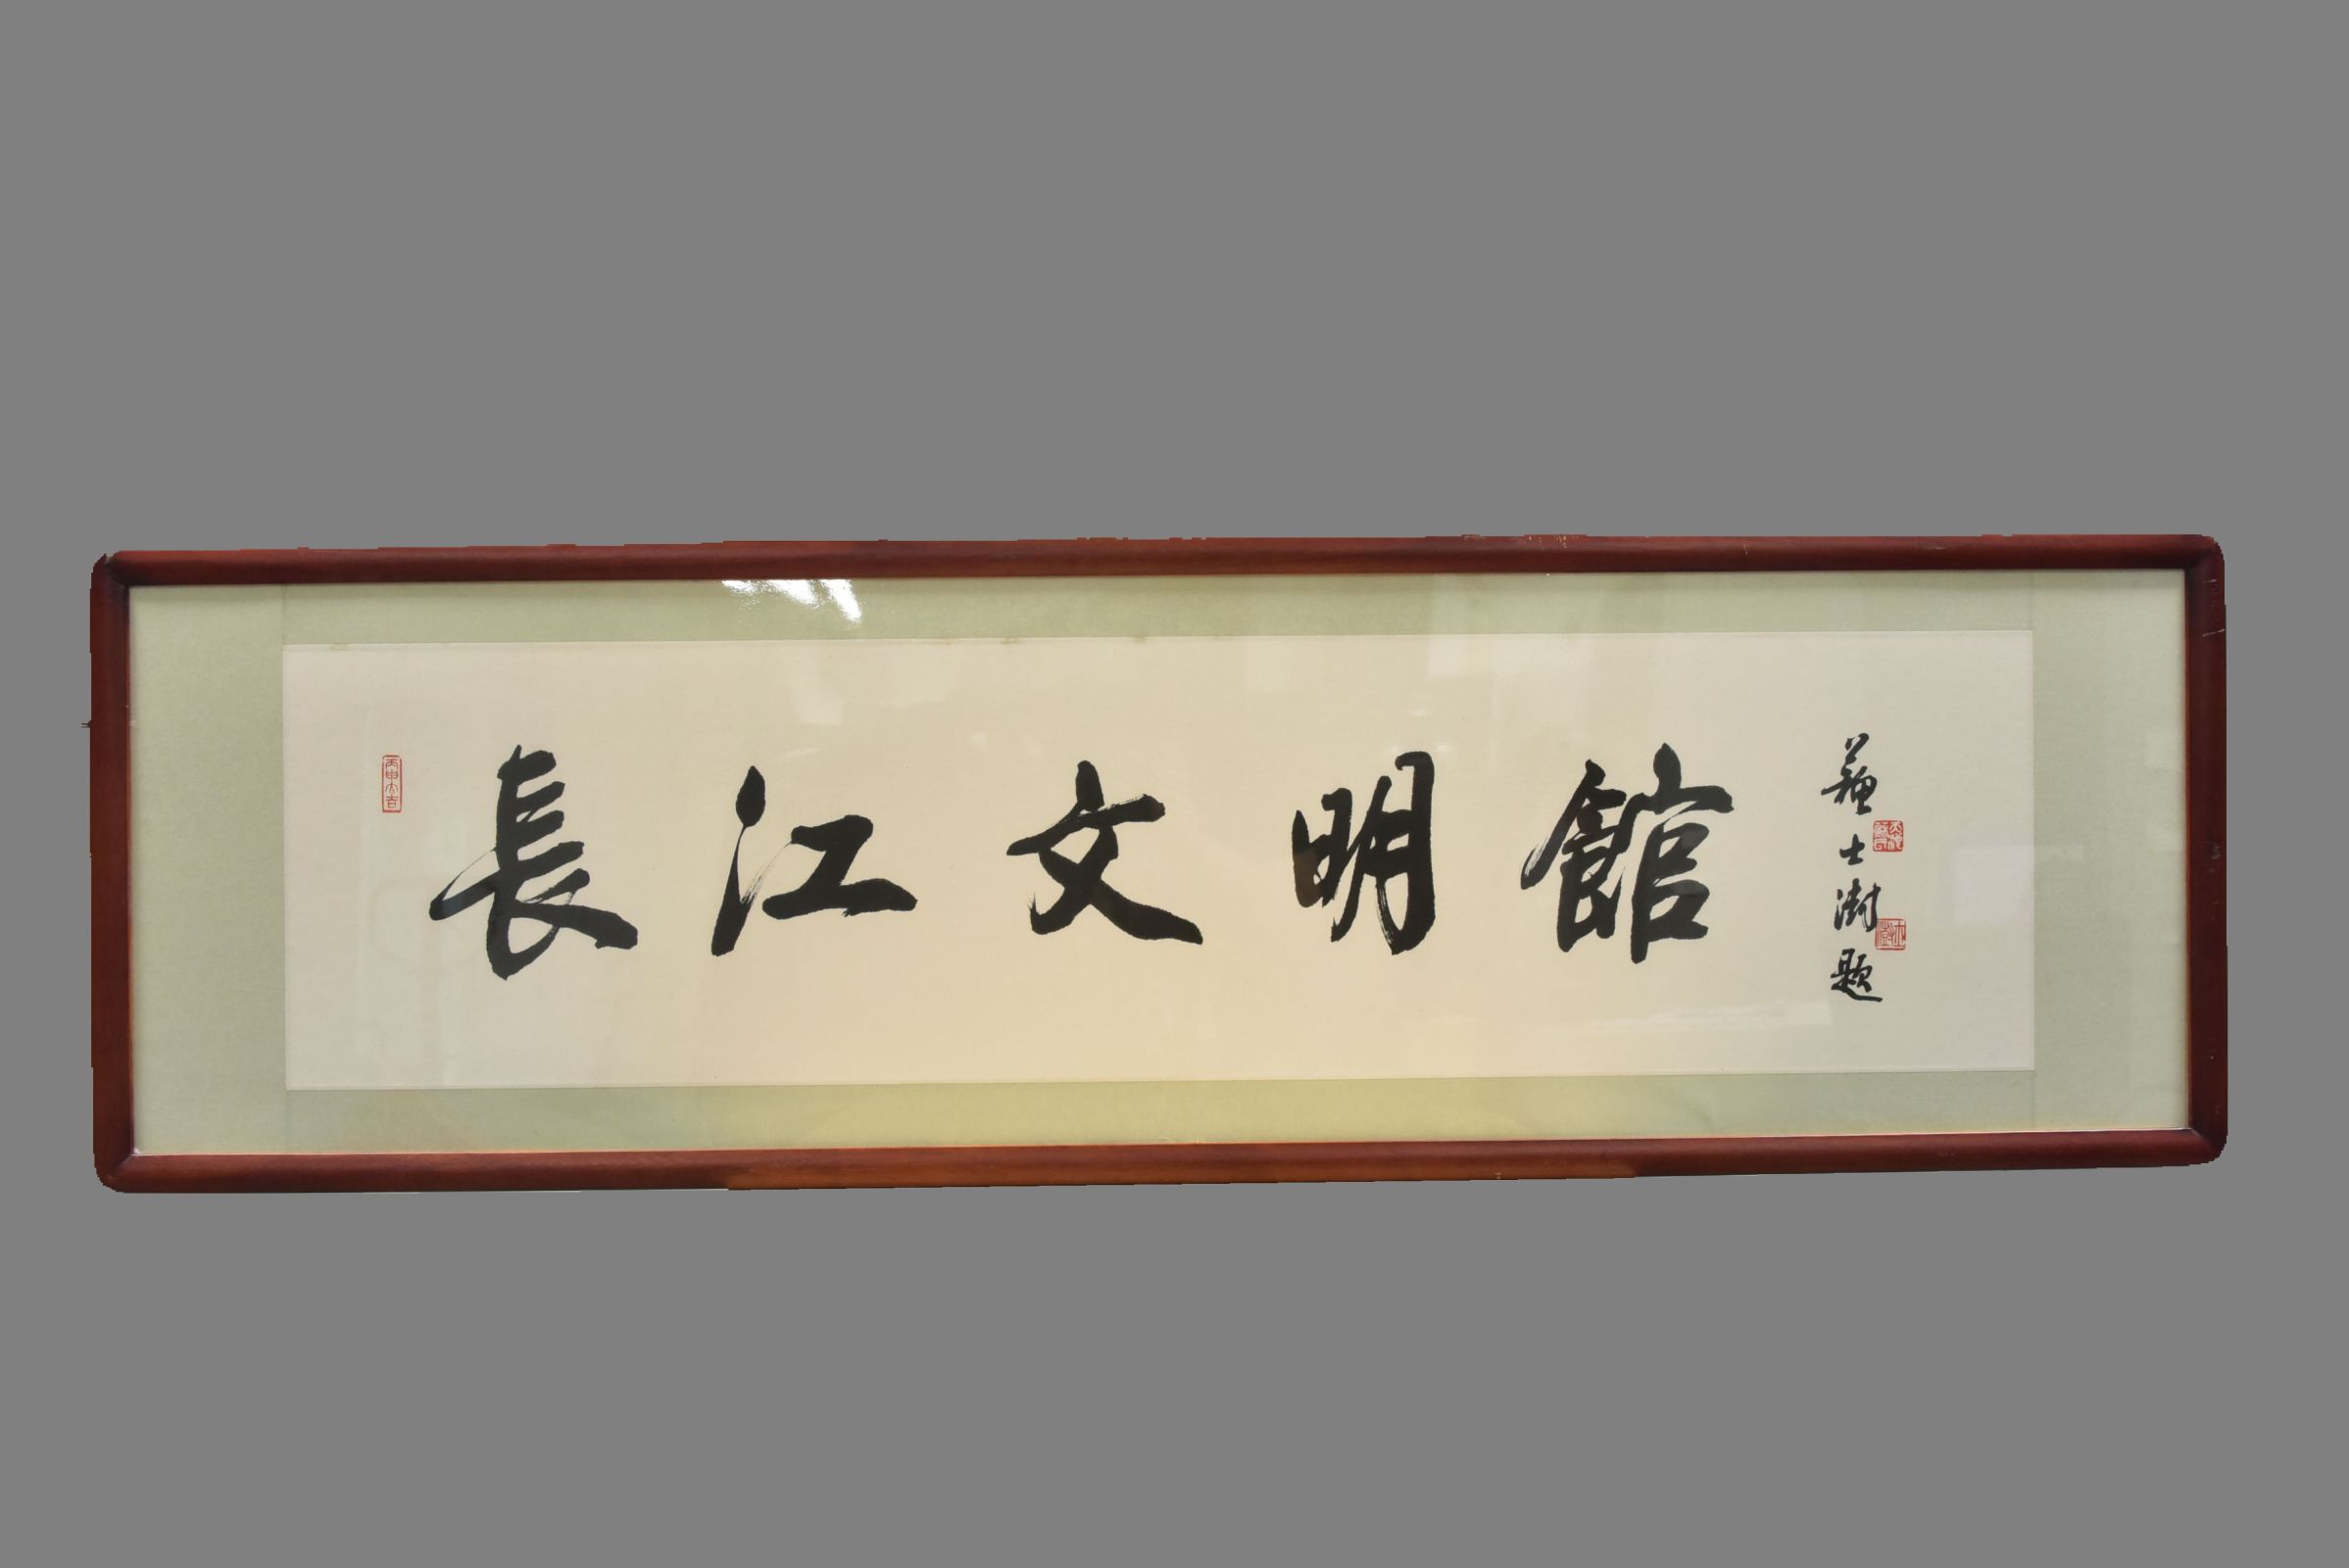 丙申大吉
長江文明館
蘇士澍題